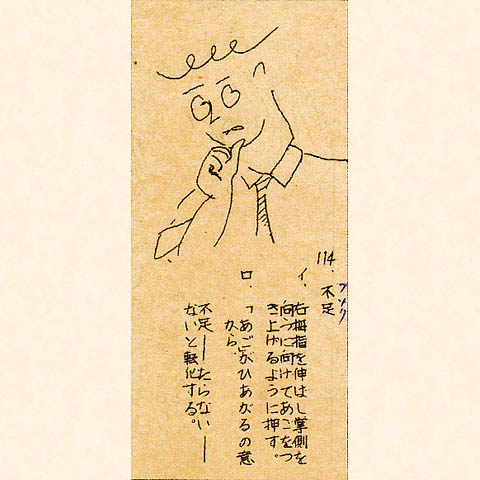 114. 不足
フソク
イ. 右拇指を伸ばし掌側を
向うに向けてあごをつ
き上げるように押す。
ロ. 「あご」がひあがるの意
から、
不足――たらない――
ないと転化する。